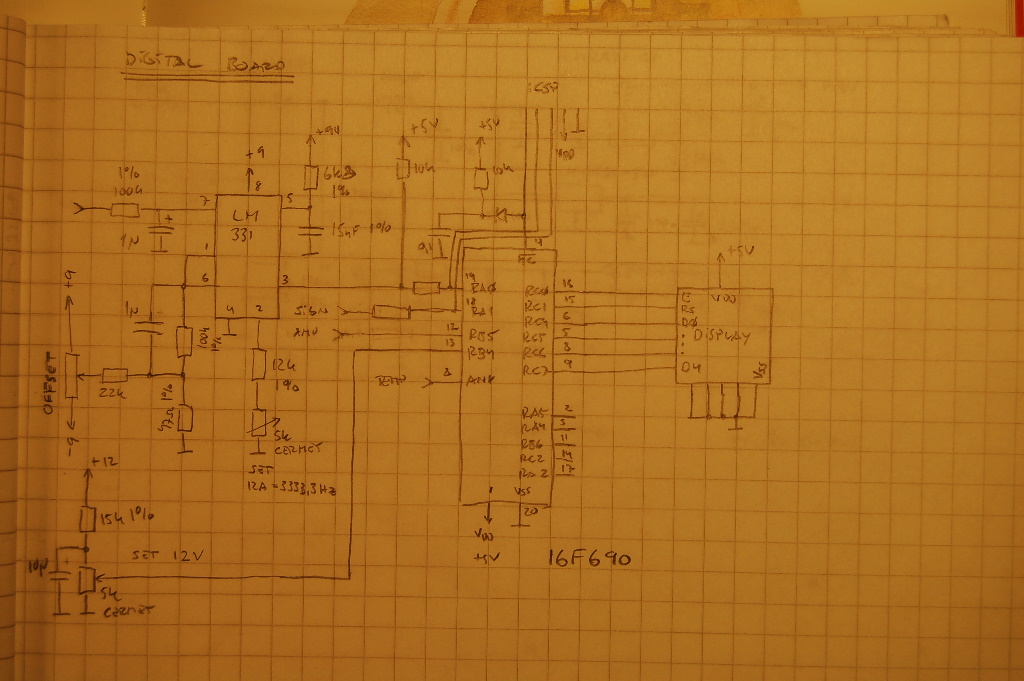 DIGITAL BOARD
ICSP
+9V
+5V
+5V
VDD
1%
100k
+9
8
7
5
LM
331
1µ
6k8
1%
15nF 1%
10k
10k
1
6
3
4
2
4
19
RA0
18
RA1
12
RB5
13
RB4
8
SIGN
TEMP
+9
1µ
100k
1%
OFFSET
22k
-9
47Ω
1%
12k
1%
5k
CERMET
SET
12A = 3333,3Hz
RC0
16
RC1
15
RC4
6
RC5
5
RC6
8
RC7
9
RA5
2
RA4
3
RB6
11
RC2
14
RA2
17
VSS
20
VDD
+5V
16F690
+5V
VDD
E
RS
D0
:
:
D4
DISPLAY
VSS
+12
15k 1%
10µ
SET 12V
5k
CERMET